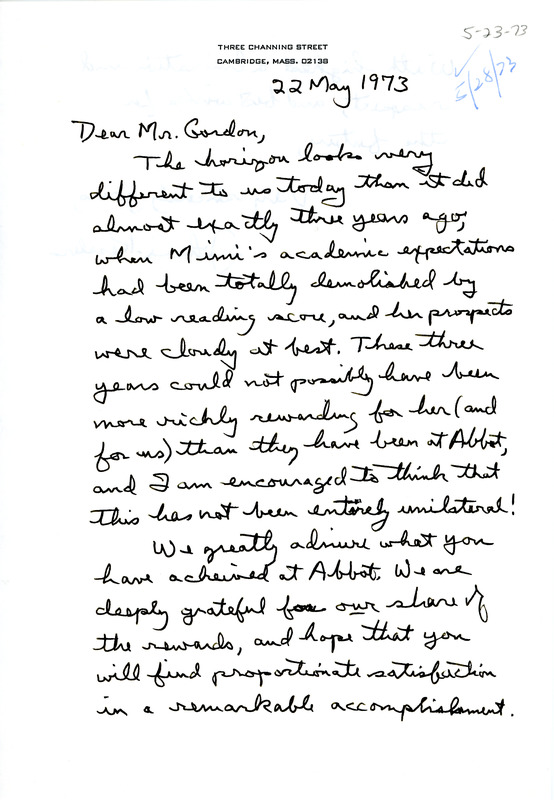 5-23-73
THREE CHANNING STREET
CAMBRIDGE, MASS. 02138
5/28/73
22 May 1973
Dear Mr. Gordon,
The horizon looks very
different to us today than it did
almost exactly three years ago,
when Mimi's academic expectations
had been totally demolished by
a low reading score, and her prospects
were cloudy at best. These three
years could not possibly have been
more richly rewarding for her (and
for us) than they have been at Abbot,
and I am encouraged to think that
this has not been entirely unilateral!
We greatly admire what you
have acheived at Abbot. We are
deeply grateful for our share of
the rewards, and hope that you
will find proportionate satisfaction
in a remarkable accomplishment.